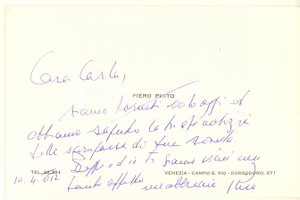 Cara Carla,
PIERO PINTO
siamo tornati ed oggi
abbiamo saputo la triste notizia
della scomparsa di tua sorella.
ti siamo vicini con
tanto affetto Piero
TEL.
VENEZIA - CAMPO S. VIO - DORSODURO, 671